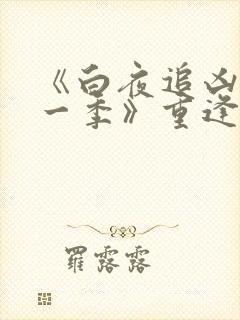 《白夜追凶
一季》重逢
羅露露